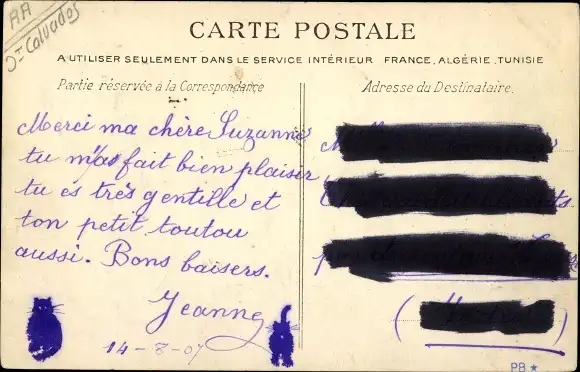 AA
Dt Calvados
CARTE POSTALE
A UTILISER SEULEMENT DANS LE SERVICE INTÉRIEUR FRANCE, ALGÉRIE, TUNISIE
Partie réservée à la Correspondance
Adresse du Destinataire.
Merci ma chère Suzanne
tu m'as fait bien plaisir
tu es très gentille et
ton petit toutou
aussi. Bons baisers.
Jeanne
14-8-07
PB